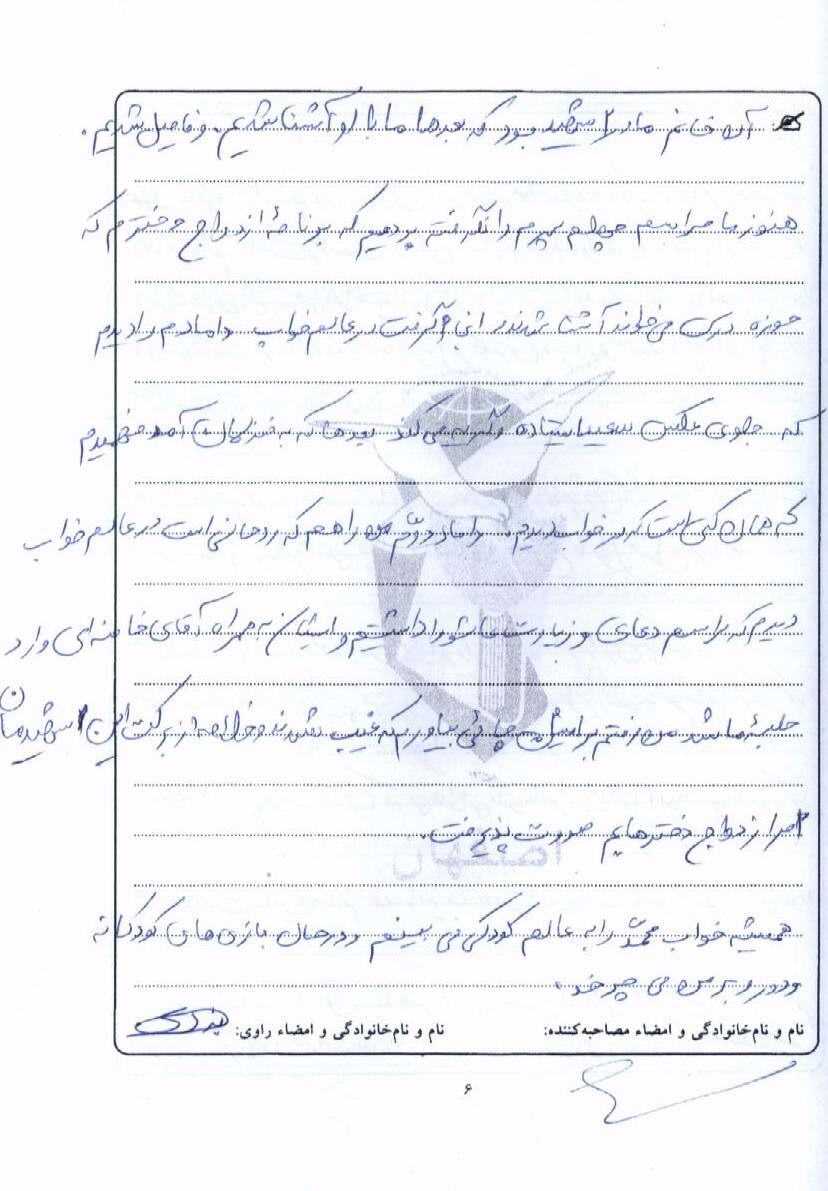 آن خانم مادر ۲ شهید بود که بعدها ما با او آشنا شدیم و فامیل شدیم.
هنوز ما مراسم چهلم پسرم را نگرفته بودیم که برنامهٔ ازدواج دخترم که
حوزه درس می‌خواند آشنا شدند انجام گرفت در عالم خواب دامادم را دیدم
که جلوی عکس سعید ایستاده و گریه می‌کند بعدها که به منزلمان آمد فهمیدم
که همان کسی است که در خواب دیدم. داماد دوّم من را هم که روحانی است در عالم خواب
دیدم که مراسم دعای و زیارت عاشورا داشتیم و ایشان به همراه آقای خامنه‌ای وارد
جلسهٔ ما شد من رفتم برایشان چائی بیاورم که غیب شدند و خلاصه از برکت این شهیدمان
امر ازدواج دخترهایم صورت پذیرفت.
همیشه خواب محمد را به عالم کودکی می بینم و در حال بازی های کودکانه
و دور و بر من می چرخد.
نام و نام‌خانوادگی و امضاء مصاحبه‌کننده: نام و نام‌خانوادگی و امضاء راوی:
۶